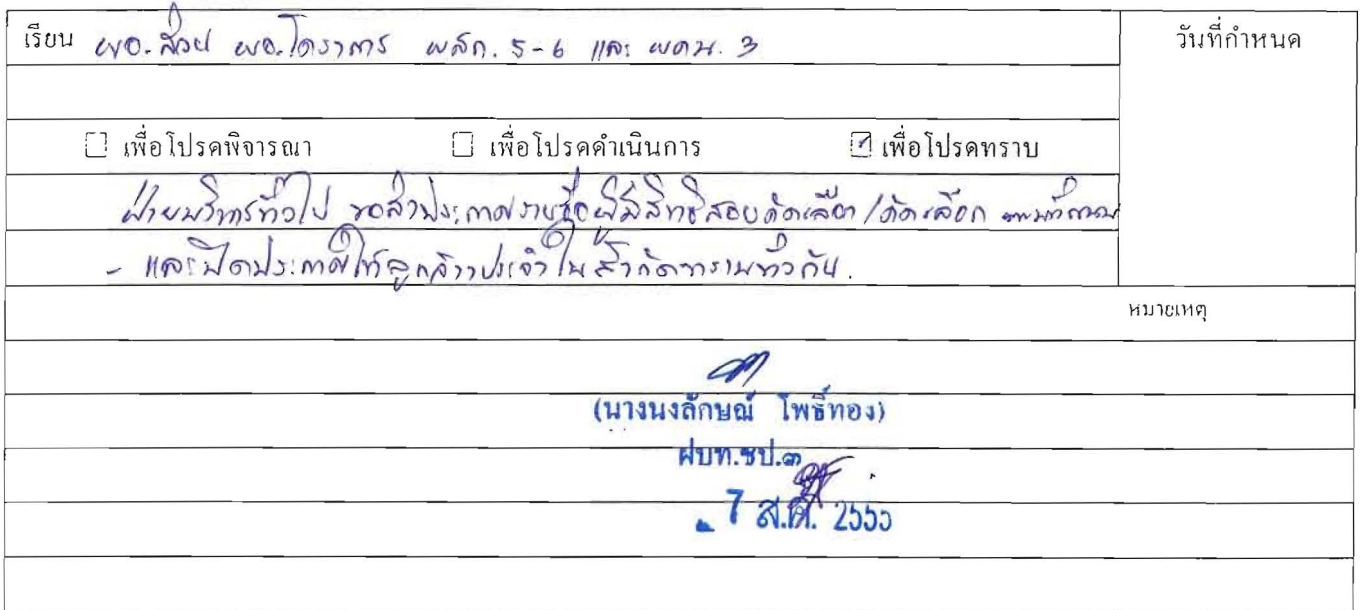 เรียน ผอ.ส่วน ผอ.โครงการ ผสก. 5-6 และ ผคน. 3
วันที่กำหนด
เพื่อโปรดพิจารณา เพื่อโปรดดำเนินการ เพื่อโปรดทราบ
ฝ่ายบริหารทั่วไป ขอส่งประกาศรายชื่อผู้มีสิทธิสอบคัดเลือก/คัดเลือก
- และปิดประกาศให้ลูกจ้างประจำในสังกัดทราบทั่วกัน.
หมายเหตุ
(นางนงลักษณ์ โพธิ์ทอง)
ฝบท.ชป.๓
7 ส.ค. 2555